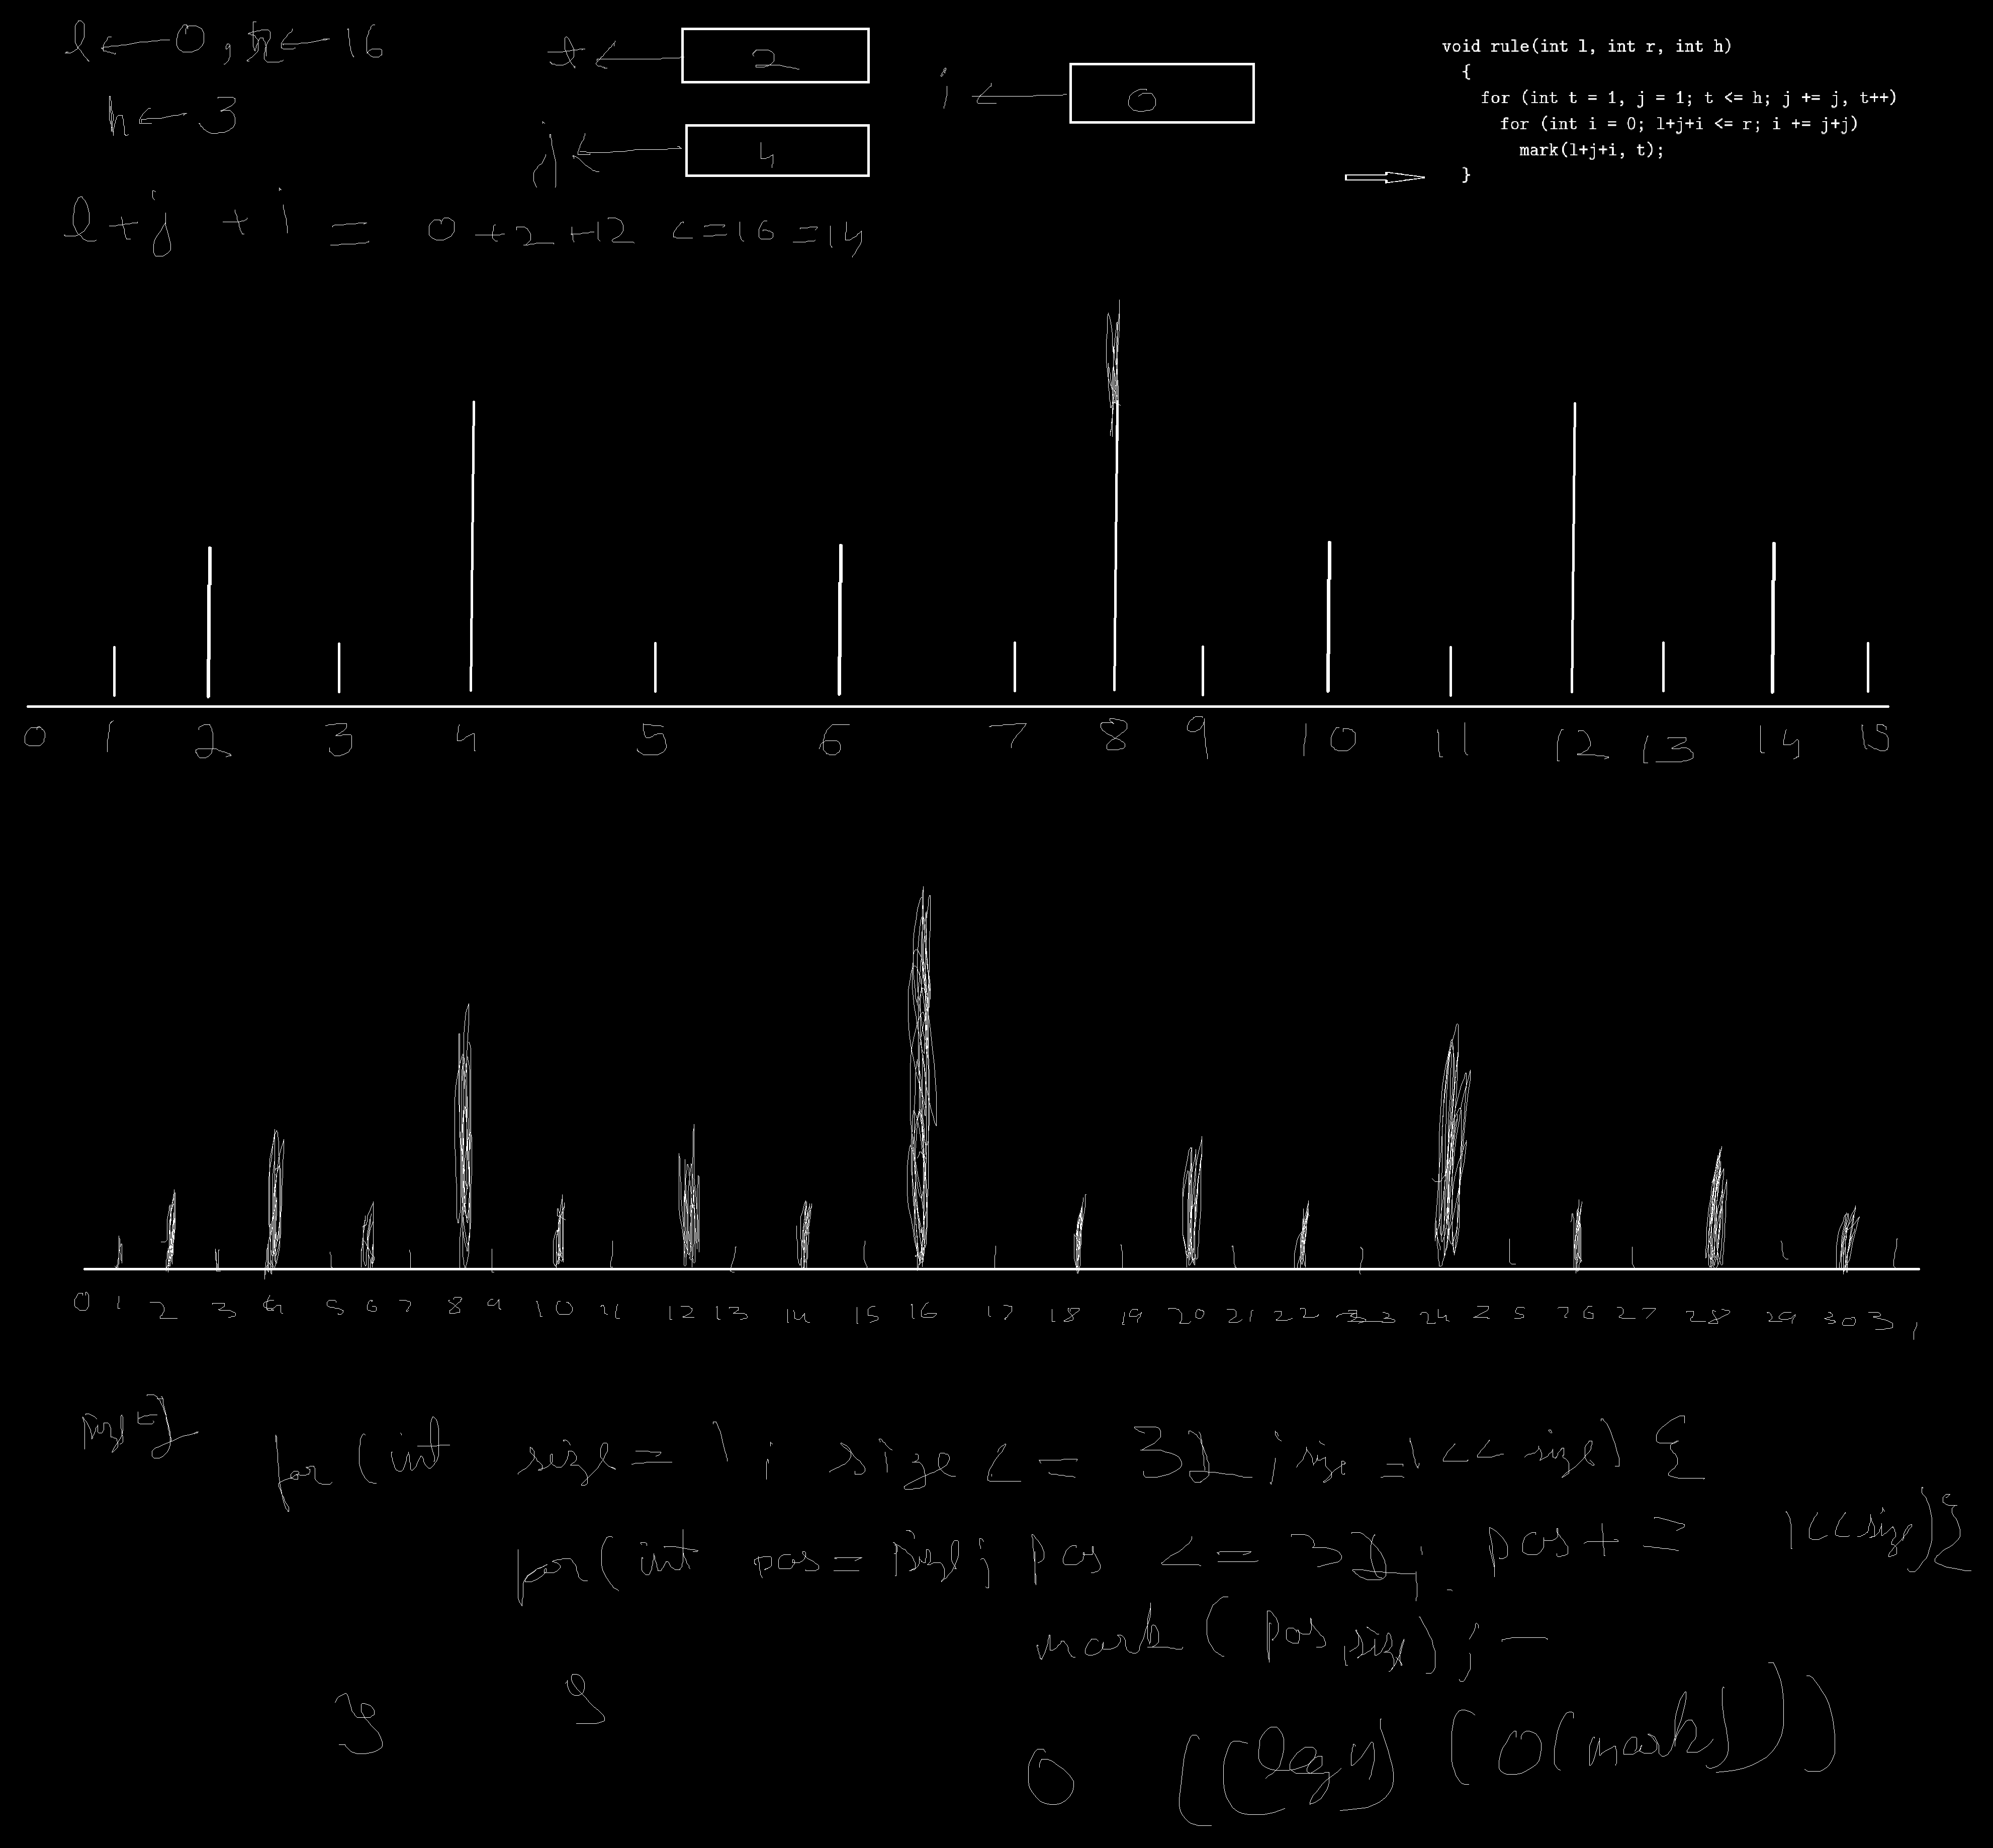 l ← 0, r ← 16
h ← 3
t ← 2
j ← 4
i ← 0
void rule(int l, int r, int h)
{
for (int t = 1, j = 1; t <= h; j += j, t++)
for (int i = 0; l+j+i <= r; i += j+j)
mark(l+j+i, t);
}
l+j+i = 0+2+12 <=16 =14
0 1 2 3 4 5 6 7 8 9 10 11 12 13 14 15
0 1 2 3 4 5 6 7 8 9 10 11 12 13 14 15 16 17 18 19 20 21 22 23 24 25 26 27 28 29 30 31
for (int size = 1; size <= 32; size = 1 << size) {
for (int pos = size; pos <= 32; pos += 1<<size) {
mark (pos, size);
}
}
O ((log n) (O(mark)))